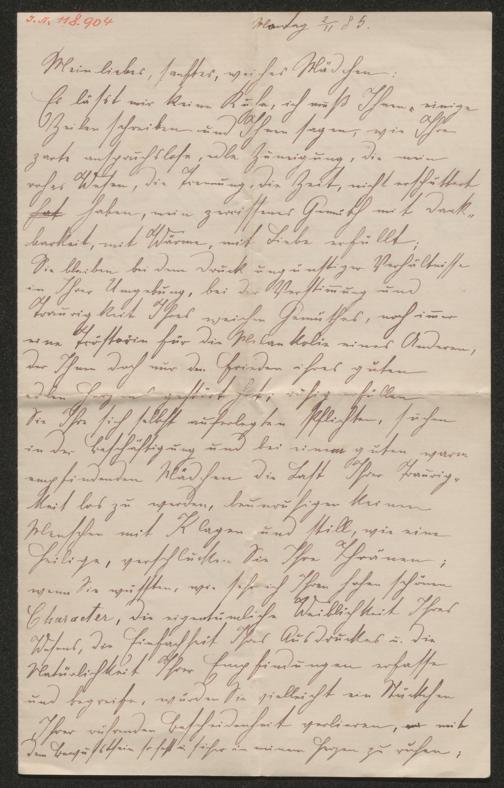 J. N. 118.904
Montag 2/11 85.
Mein liebes, sanftes, weiches Mädchen:
Es lässt mir keine Ruhe, ich muß Ihnen einige
Zeilen schreiben und Ihnen sagen, wie Ihre
zarte anspruchslose, edle Zuneigung, die mein
rohes Wesen, die Trennung, die Zeit, nicht erschüttert
hat haben, mein zerrissenes Gemüth mit Dank-
barkeit, mit Wärme, mit Liebe erfüllt;
Sie bleiben bei dem Druck ungünstiger Verhältnisse
in Ihrer Umgebung, bei der Verstimmung und
Traurigkeit Ihres weichen Gemüthes, noch immer
eine Trösterin für die Melankolie eines Anderen,
der Ihnen doch nur den Frieden ihres guten
edlen Herzens gestört hat; ruhig erfüllen
Sie Ihre sich selbst auferlegten Pflichten, suchen
in der Beschäftigung und bei einem guten warm
empfindenden Mädchen die Last Ihrer Traurig-
keit los zu werden, beunruhigen keinen
Menschen mit Klagen und still, wie eine
Heilige, verschlucken Sie Ihre Thränen;
wenn Sie wüssten, wie sehr ich Ihren hohen schönen
Character, die eigentümliche Weiblichkeit Ihres
Wesens, die Einfachheit Ihres Ausdruckes u. die
Natürlichkeit Ihrer Empfindungen erfasse
und begreife, würden Sie vielleicht ein Stückchen
Ihrer rührenden Bescheidenheit verlieren, mit
dem Bewusstsein so fest u. sicher in meinem Herzen zu ruhen;